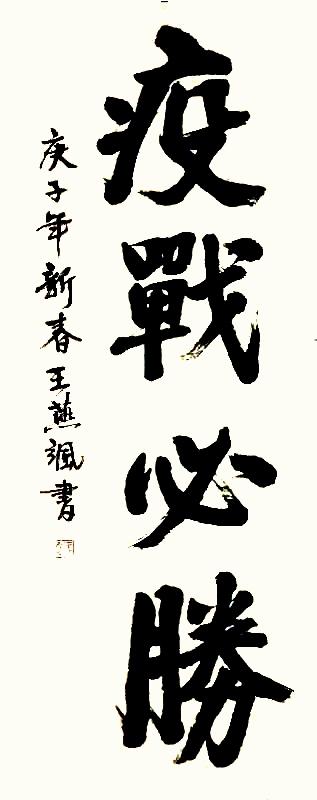 疫戰必勝
庚子年新春王燕颯書